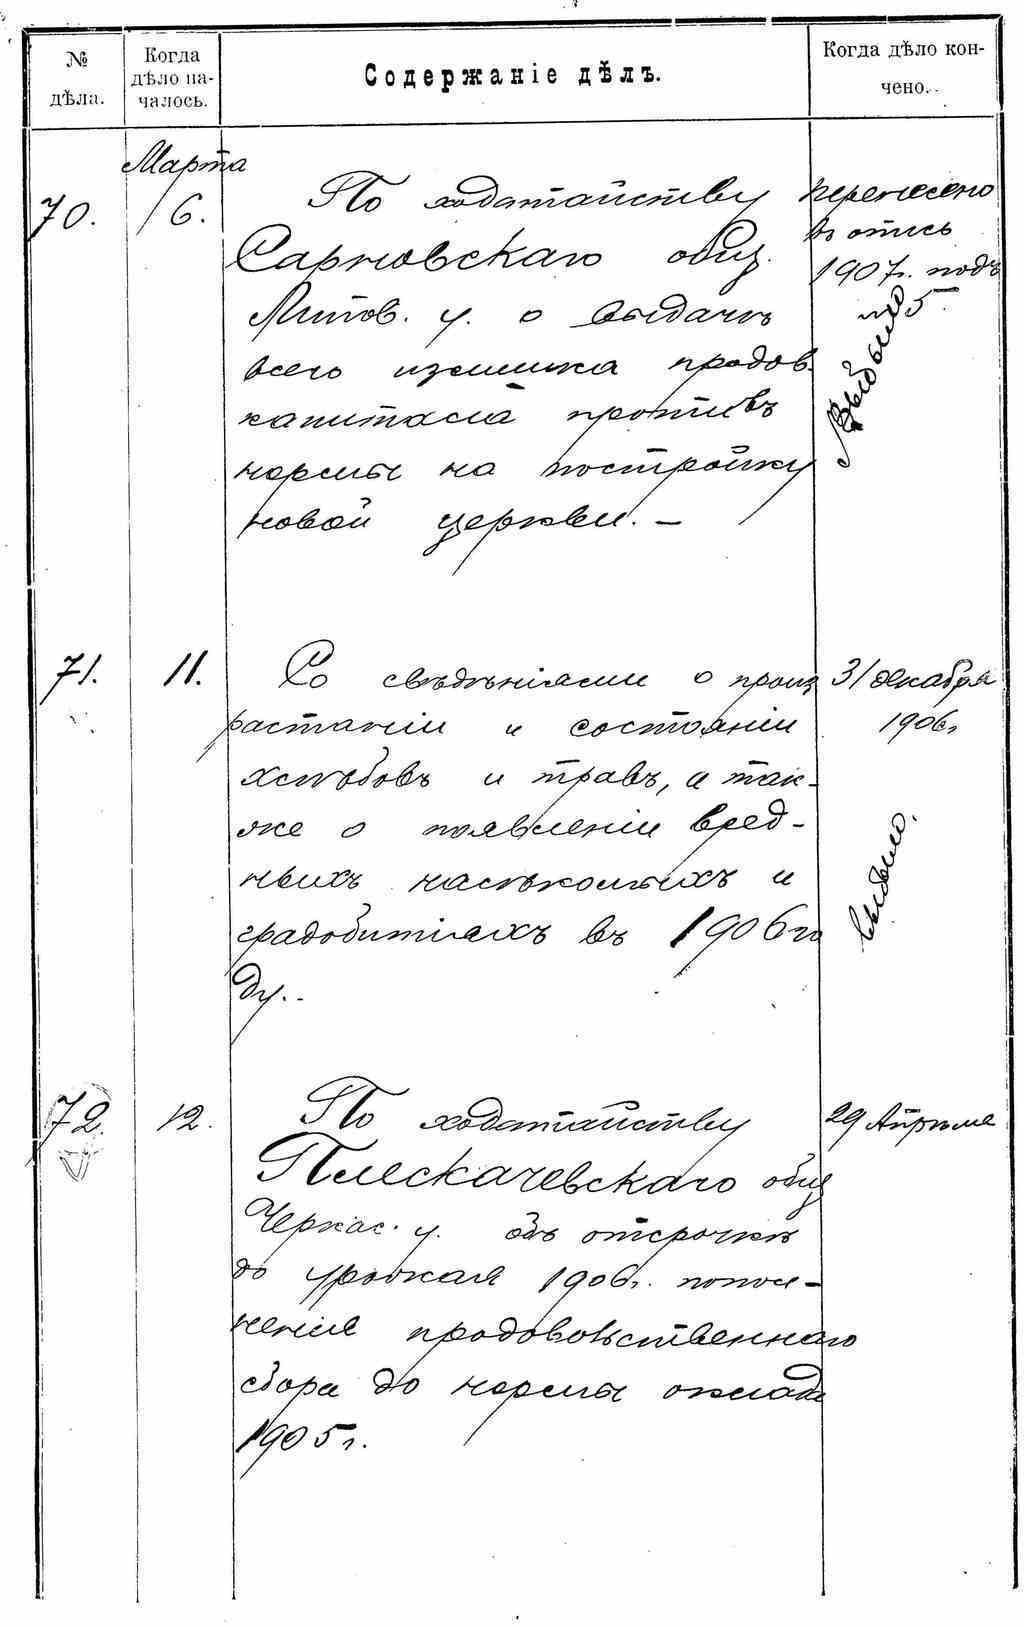 № дѣла.
Когда дѣло на-
чалось.
Содержаніе дѣлъ.
Когда дѣло кон-
чено.
Марта
70. 6. По ходатайству
Сарновскаго общ.
Липов. у. о выдачѣ
всего излишка продов.
капитала противъ
нормы на постройку
новой церкви. —
перенесено
въ опись
1907г. подъ
№ 5.
Выбыло
71. 11. Со свѣдѣніями о произ
растаніи и состояніи
хлѣбовъ и травъ, а так-
же о появленіи вред-
ныхъ насѣкомыхъ и
градобитіяхъ въ 1906 го
ду..
31 декабря
1906г
выбыло.
72. 12. По ходатайству
Плескачевскаго общ
Черкас. у. объ отсрочкѣ
до урожая 1906г. попол-
ненія продовольственнаго
сбора до нормы оклада
1905 г.
29 Апрѣля